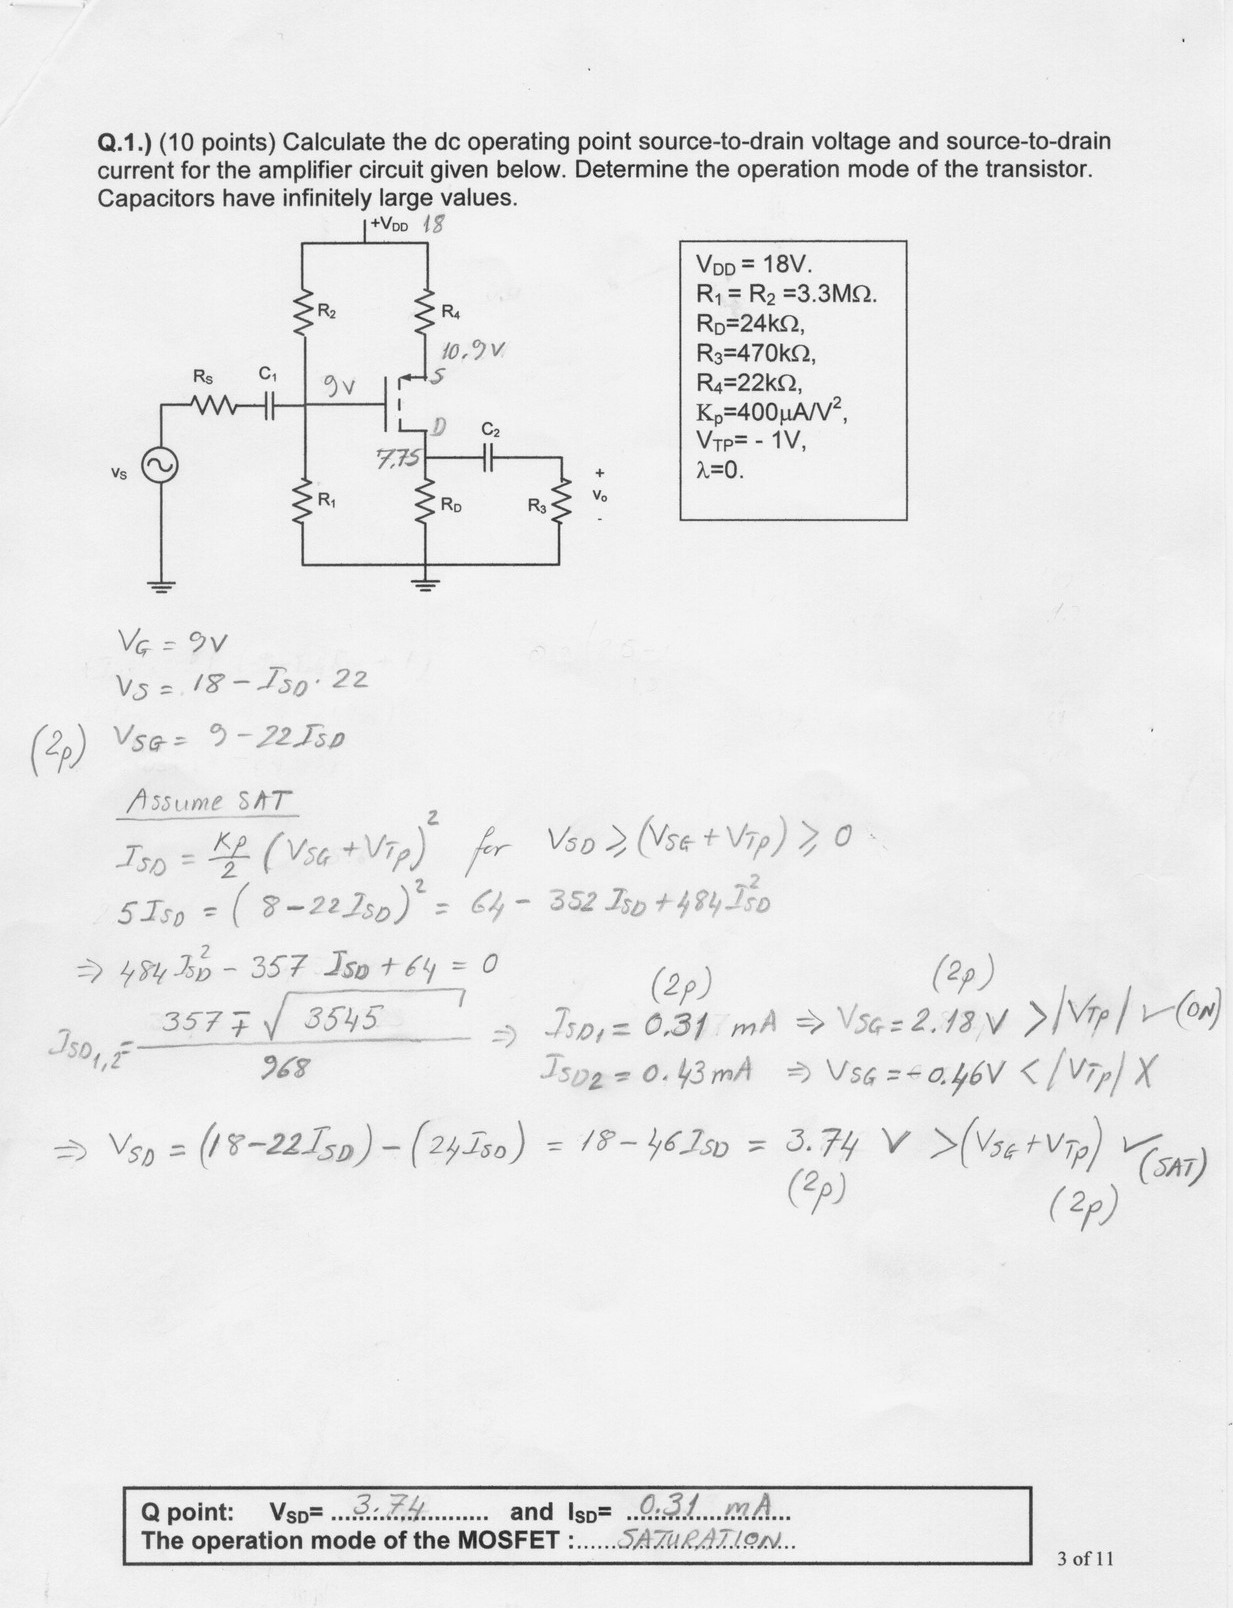 Q.1.) (10 points) Calculate the dc operating point source-to-drain voltage and source-to-drain
current for the amplifier circuit given below. Determine the operation mode of the transistor.
Capacitors have infinitely large values.
+VDD 18
R2
R4
10.9V
RS
C1
9V
S
D
C2
7.75
vs
R1
RD
R3
+
vo
-
VDD = 18V.
R1 = R2 =3.3MΩ.
RD=24kΩ,
R3=470kΩ,
R4=22kΩ,
Kp=400μA/V²,
VTP= - 1V,
λ=0.
VG = 9V
VS = 18 - ISD · 22
(2p) VSG = 9 - 22ISD
Assume SAT
ISD = Kp/2 (VSG + VTp)² for VSD ≥ (VSG + VTp) ≥ 0
5ISD = (8-22ISD)² = 64 - 352 ISD + 484 ISD²
⇒ 484 ISD² - 357 ISD + 64 = 0
(2p) (2p)
ISD1,2 = 357 ∓ √3545 / 968 ⇒ ISD1 = 0.31 mA ⇒ VSG = 2.18 V > |VTp| ✓ (ON)
ISD2 = 0.43 mA ⇒ VSG = -0.46V < |VTp| X
⇒ VSD = (18-22ISD) - (24ISD) = 18 - 46ISD = 3.74 V > (VSG + VTp) ✓ (SAT)
(2p) (2p)
Q point: VSD= ...3.74.......... and ISD= ..0.31...mA...
The operation mode of the MOSFET :......SATURATION...
3 of 11